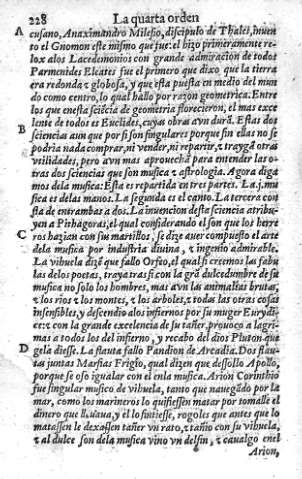 228 La quarta orden
A cusano, Anaximandro Milesio, discipulo de Thales, inuen
to el Gnomon este mismo que fue: el hizo primeramente re-
lox alos Lacedemonios con grande admiracion de todos
Parmenides Eleates fue el primero que dixo que la tierra
era redonda z globosa, y que esta puesta en medio del mun
do como centro, lo qual hallo por razon geometrica. Entre
los que enesta sciēcia de geometria florecieron, el mas exce
lente de todos es Euclides, cuyas obras avn durā. Estas dos
B sciencias aun que por si son singulares porque sin ellas no se
podria nada comprar, ni vender, ni reparir, z traygā otras
vtilidades, pero avn mas aprouechā para entender las o-
tras dos sciencias que son musica z astrologia. Agora diga
mos dela musica: Esta es repartida en tres partes. La.j.mu
sica es delas manos. La segunda es el canto. La tercera con
sta de entrambas a dos. La inuencion desta sciencia atribu-
yen a Pithagoras, el qual considerando el son que los herre
C ros hazien con sus martillos, se dize auer compuesto el arte
dela musica por industria diuina, z ingenio admirable.
La vihuela dizē que fallo Orfeo, el qual si creemos las fabu
las delos poetas, traya tras si con la grā dulcedumbre de su
musica no solo los hombres, mas avn las animalias brutas,
z los rios z los montes, z los arboles, z todas las otras cosas
insensibles, y descendio alos infiernos por su muger Eurydi
ce: z con la grande excelencia de su tañer, prouoco a lagri-
mas a todos los del infierno, y recabo del dios Pluton que
D gela diesse. La flauta fallo Pandion de Arcadia. Dos flau-
ta juntas Marsias Frigio, qual dizen que dessollo Apollo,
porque se oso igualar con el enla musica. Arion Corinthio
fue singular musico de vihuela, tanto que nauegādo por la
mar, como los marineros lo quisiessen matar por tomalle el
dinero que lleuaua, y el lo sintiesse, rogoles que antes que lo
matassen le dexassen tañer vn rato, z tañio con su vihuela,
z al dulce son dela musica vino vn delfin, z caualgo enel
Arion,